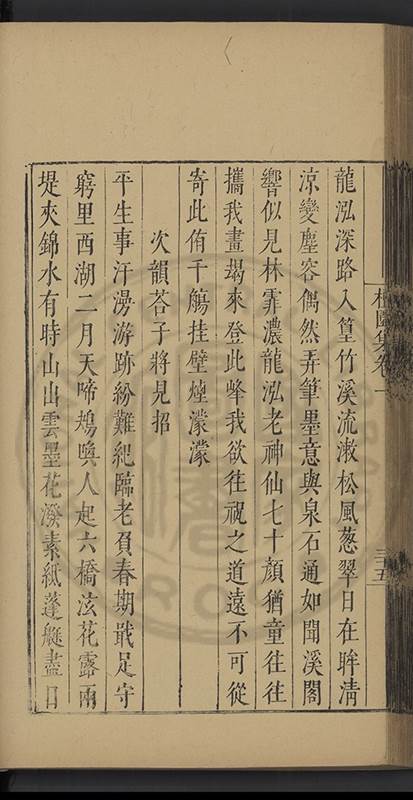 龍泓深路入篁竹溪流漱松風蔥翠日在眸清
涼變塵容偶然弄筆墨意與泉石通如聞溪閣
響似見林霏濃龍泓老神仙七十顏猶童往往
攜我畫朅來登此峰我欲往祝之道遠不可從
寄此侑千觴挂壁煙濛濛
次韻荅子將見招
平生事汗漫游跡紛難紀臨老負春期戢足守
窮里西湖二月天啼鴂喚人起六橋泫花露兩
堤夾錦水有時山出雲墨花潑素紙蓬艇盡日
集卷一
三十五